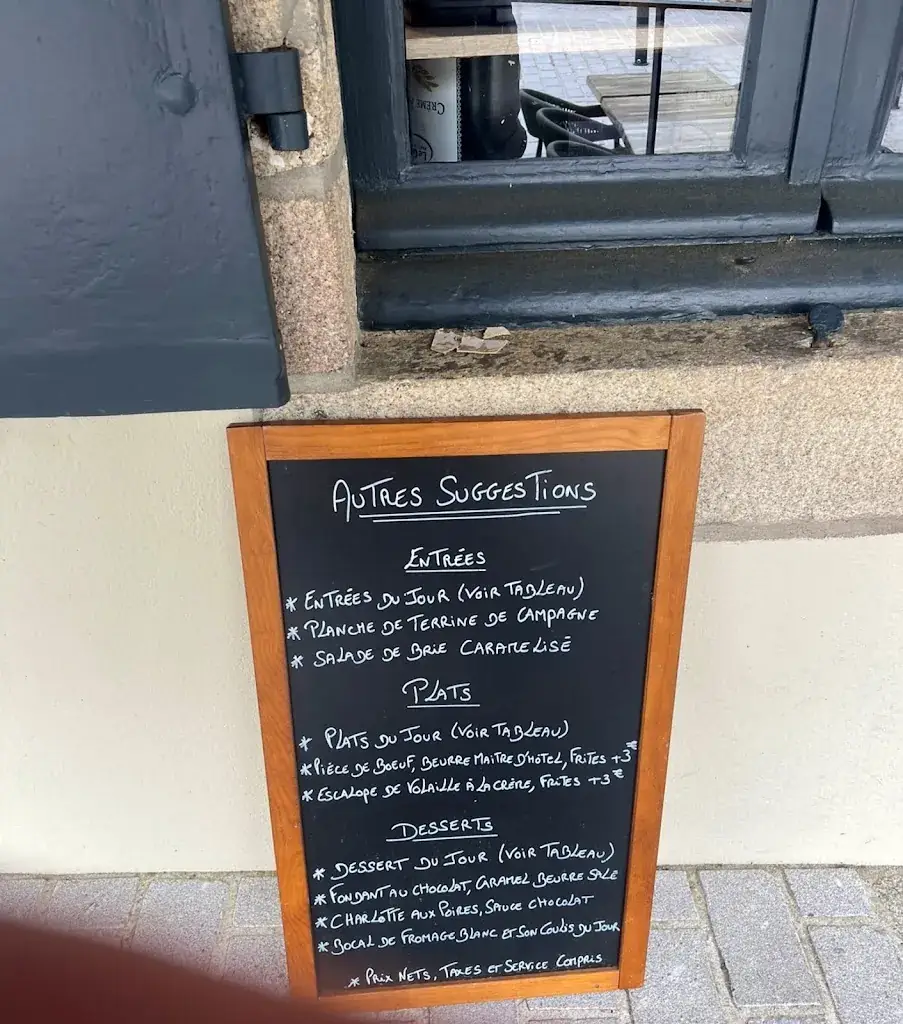 CRÈME
AUTRES SUGGESTIONS
ENTRÉES
* ENTRÉES DU JOUR (VOIR TABLEAU)
* PLANCHE DE TERRINE DE CAMPAGNE
* SALADE DE BRIE CARAMELISÉ
PLATS
* PLATS DU JOUR (VOIR TABLEAU)
* PIÈCE DE BOEUF, BEURRE MAITRE D'HÔTEL, FRITES +3€
* ESCALOPE DE VOLAILLE À LA CRÈME, FRITES +3€
DESSERTS
* DESSERT DU JOUR (VOIR TABLEAU)
* FONDANT AU CHOCOLAT, CARAMEL BEURRE SALÉ
* CHARLOTTE AUX POIRES, SAUCE CHOCOLAT
* BOCAL DE FROMAGE BLANC ET SON COULIS DU JOUR
* PRIX NETS, TAXES ET SERVICE COMPRIS